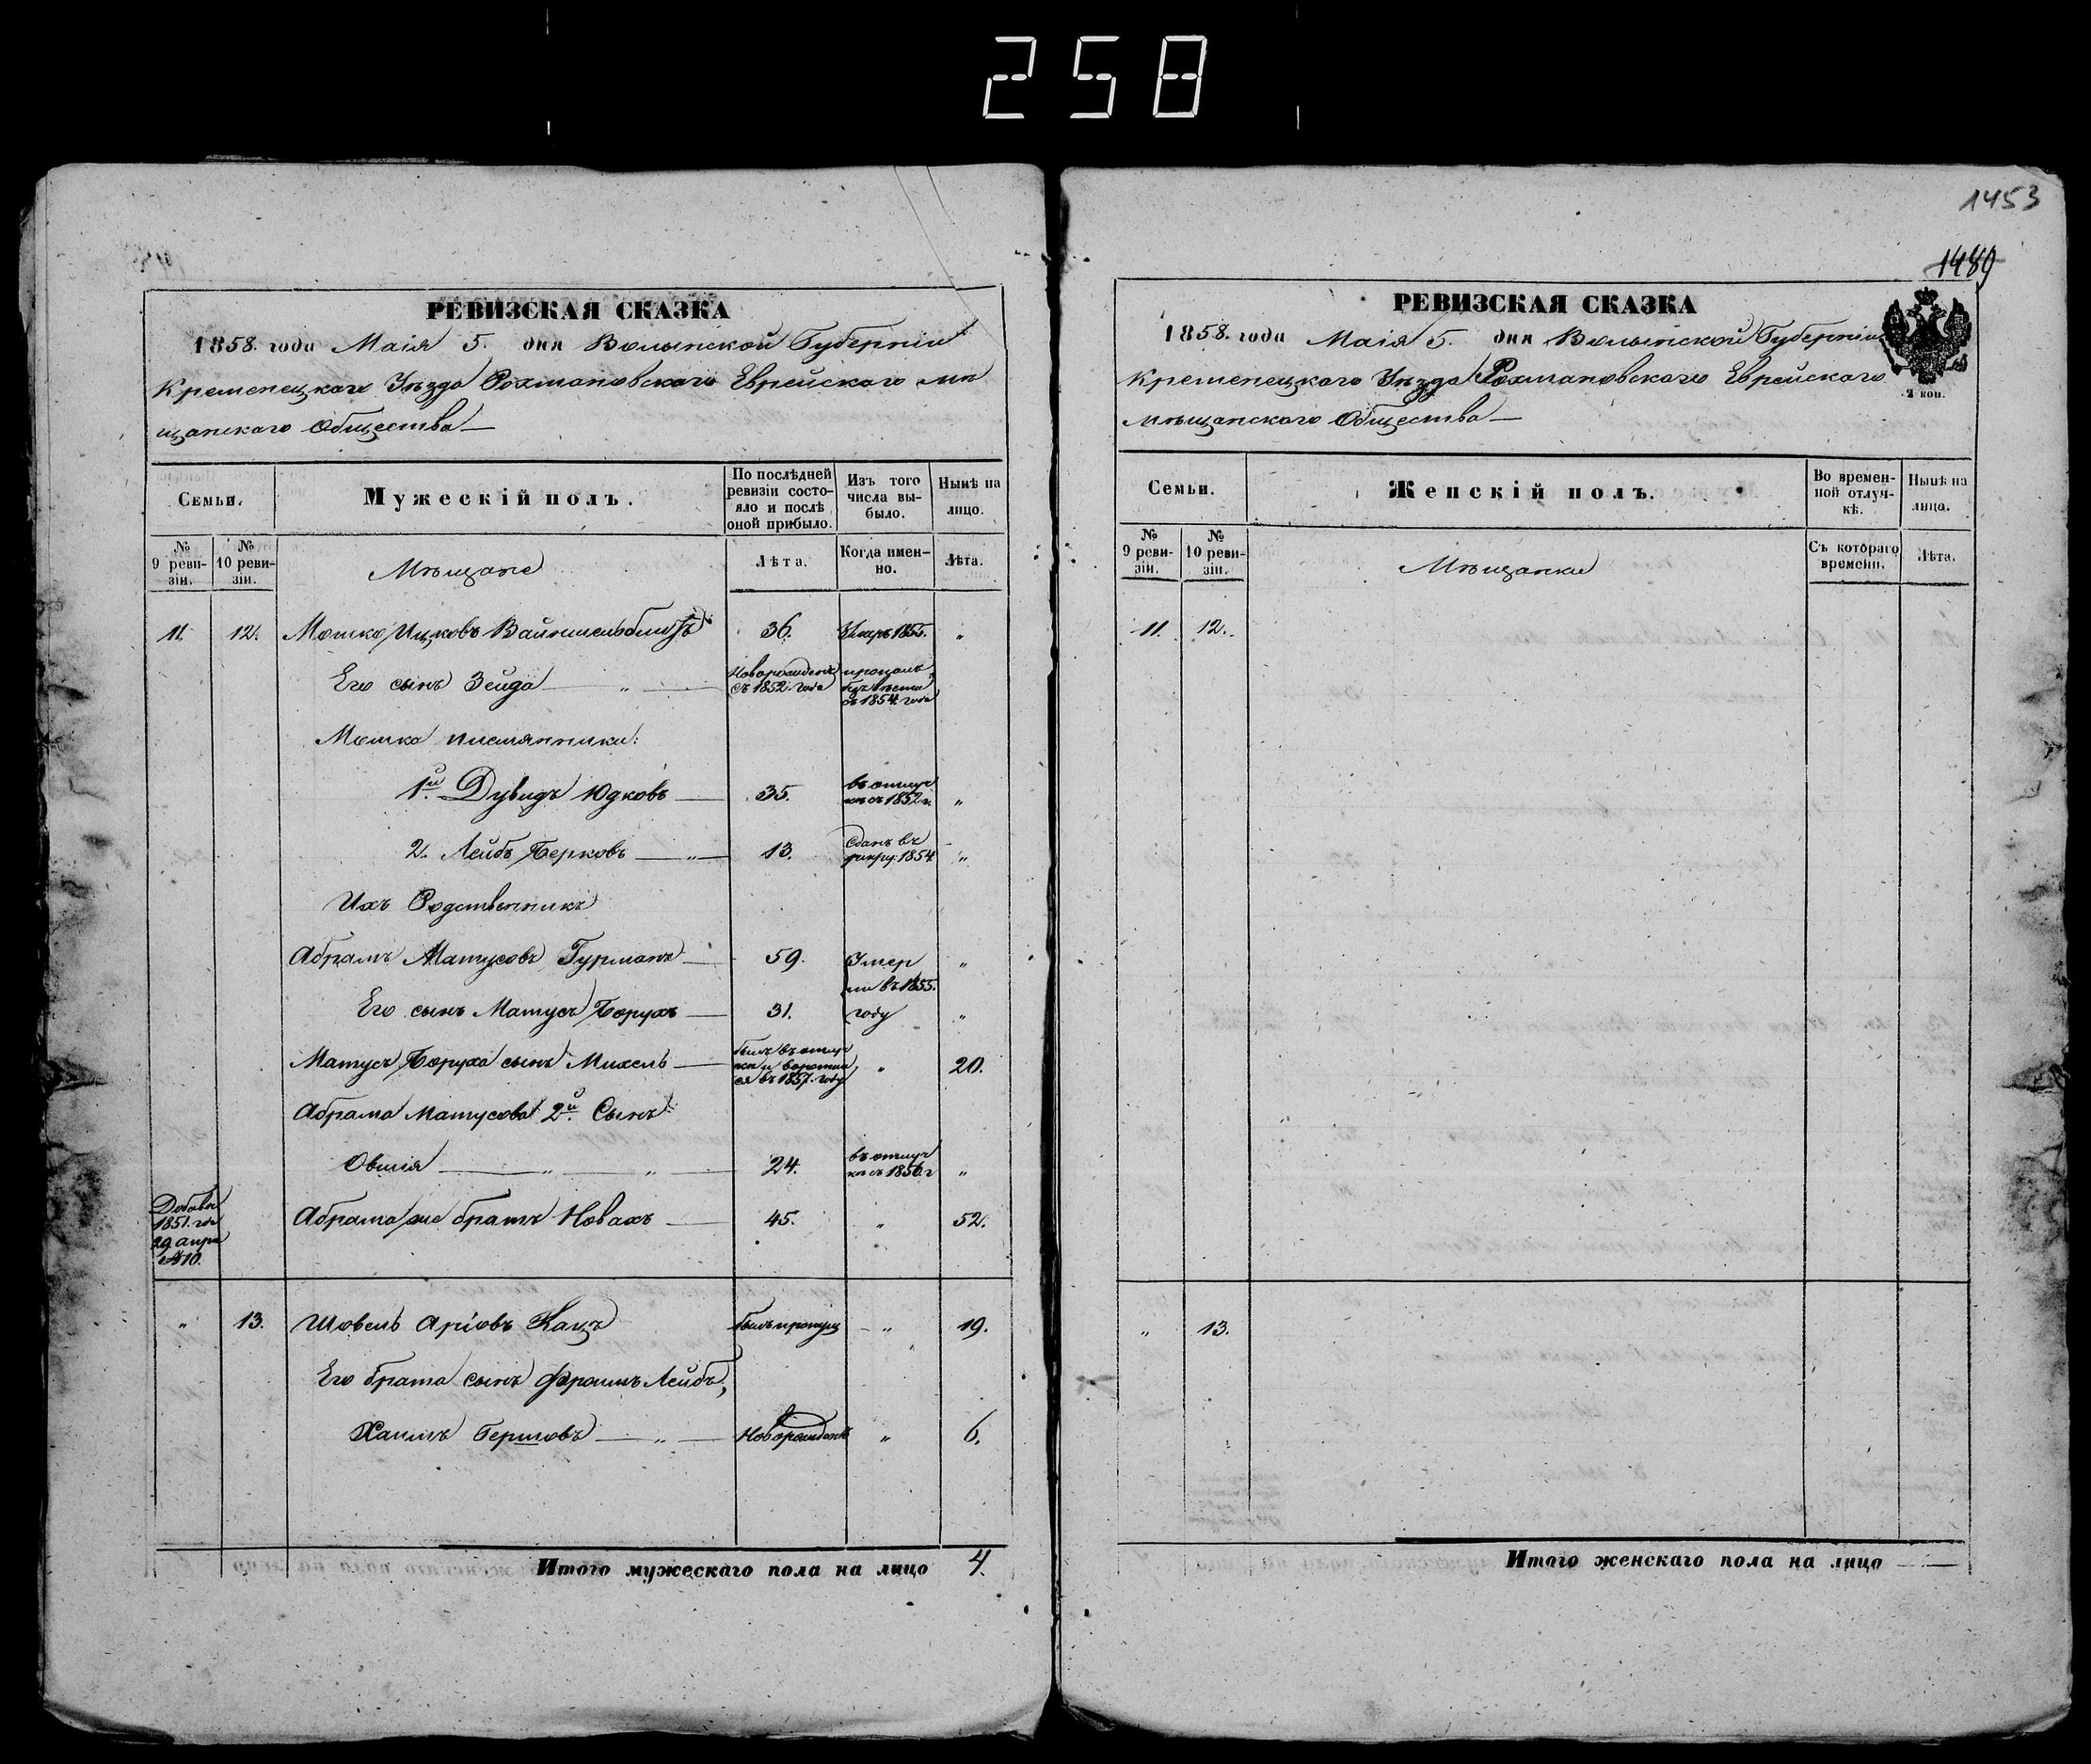 258
1453
1489
РЕВИЗСКАЯ СКАЗКА
1858. года Маія 5. дня Волынской Губерніи
Кременецкаго Уѣзда Рохмановскаго Еврейскаго мѣ
щанскаго Общества
Семьи.
Мужескій полъ.
По послѣдней
ревизіи состо-
яло и послѣ
оной прибыло.
Изъ того
числа вы-
было.
Нынѣ на
лицо.
№
9 реви-
зіи.
№
10 реви-
зіи.
Мѣщане
Лѣта.
Когда имен-
но.
Лѣта.
11. 12. Мошко Ицковъ 36. 1855. "
Его сынъ Зейда " Новорожденъ
съ 1852 года
пропалъ
безъ вѣсти
съ 1854 года
Мошка племянники:
1й Дувидъ Юдковъ 35. въ отлуч
кѣ съ 1852 г. "
2. Лейбъ Берковъ " 13. Сданъ въ
рекру. 1854 "
Ихъ Родственникъ
Абрамъ Матусовъ Гурманъ 59. Умер "
ли въ 1855.
Его сынъ Матусъ Борухъ 31. году "
Матусъ Боруха сынъ Михель былъ въ отлуч
кѣ и воротил
ся въ 1857. году " 20.
Абрама Матусова 2й Сынъ
Овшія " " 24. въ отлуч
кѣ съ 1856. г "
1851. го
29 апре
№ 10.
Абрама же братъ Новахъ 45. " 52.
" 13. Шовель Аріовъ Кацъ былъ пропущ " 19.
Его брата сынъ Фроимъ Лейбъ,
Хаимъ Бершовъ " Новорожденъ " 6.
Итого мужескаго пола на лицо 4.
РЕВИЗСКАЯ СКАЗКА
1858. года Маія 5. дня Волынской Губерніи
Кременецкаго Уѣзда Рохмановскаго Еврейскаго
мѣщанскаго Общества
2 коп.
Семьи.
Женскій полъ.
Во времен-
ной отлуч-
кѣ.
Нынѣ на
лицо.
№
9 реви-
зіи.
№
10 реви-
зіи.
Мѣщанки
Съ котораго
времени.
Лѣта.
11. 12.
" 13.
Итого женскаго пола на лицо